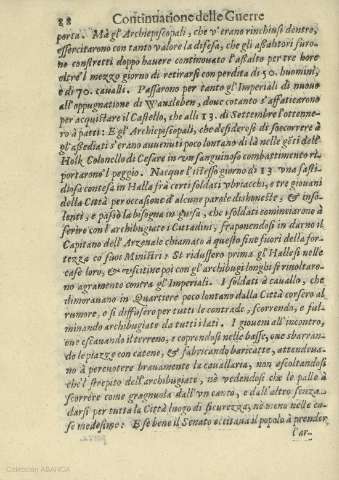 88 Continuatione delle Guerre
porta. Mà gl'Archiepiscopali, che v'erano rinchiusi dentro,
essercitarono con tanto valore la difesa, che gli assalitori furo-
no constretti doppo hauere continouato l'assalto per tre hore
oltre'l mezzo giorno di retirarsi con perdita di 50. huomini,
e di 70. caualli. Passarono per tanto gl'Imperiali di nuouo
all'oppugnatione di Wansleben, doue cotanto s'affaticarono
per acquistare il Castello, che alli 13. di Settembre l'ottenne-
ro à patti: E gl'Archiepiscopali, che desiderosi di soccorrere à
gl'assediati s'erano auuenuti poco lontano di là nelle gẽti dell'
Holk Colonello di Cesare in vn sanguinoso combattimento ri-
portarono'l peggio. Nacque l'istesso giorno di 13 vna fasti-
diosa contesa in Halla frà certi soldati vbriacchi, e tre giouani
della Città per occasione d'alcune parole dishoneste, & inso-
lenti, e passò la bisogna in guisa, che i soldati cominciarono à
ferire con l'archibugiate i Cittadini, fraponendosi in darno il
Capitano dell'Arzenale chiamato à questo fine fuori della for-
tezza cõ suoi Ministri: Si ridussero prima gl'Hallesi nelle
case loro, & vscitine poi con gl'archibugi longhi si riuoltaro-
no agramente contra gl'Imperiali. I soldati à cauallo, che
dimorauano in Quartiere poco lontano dalla Città corsero al
rumore, e si diffusero per tutti le contrade, scorrendo, e ful-
minando archibugiate da tutti i lati. I giouani all'incontro,
oue escauando il terreno, e coprendosi nelle basse, oue sbarran-
do le piazze con catene, & fabricando baricatte, attendeua-
no à percuotere brauamente la cauallaria, non ascoltandosi
che'l strepito dell'archibugiate, nè vedendosi che le palle à
scorrere come gragnuola dall'vn canto, e dall'altro senza
darsi per tutta la Città luogo di sicurezza, nè meno nelle ca-
se medesime: E se bene il Senato eccitaua il popolo à prender
l'ar-
Colección ABANCA